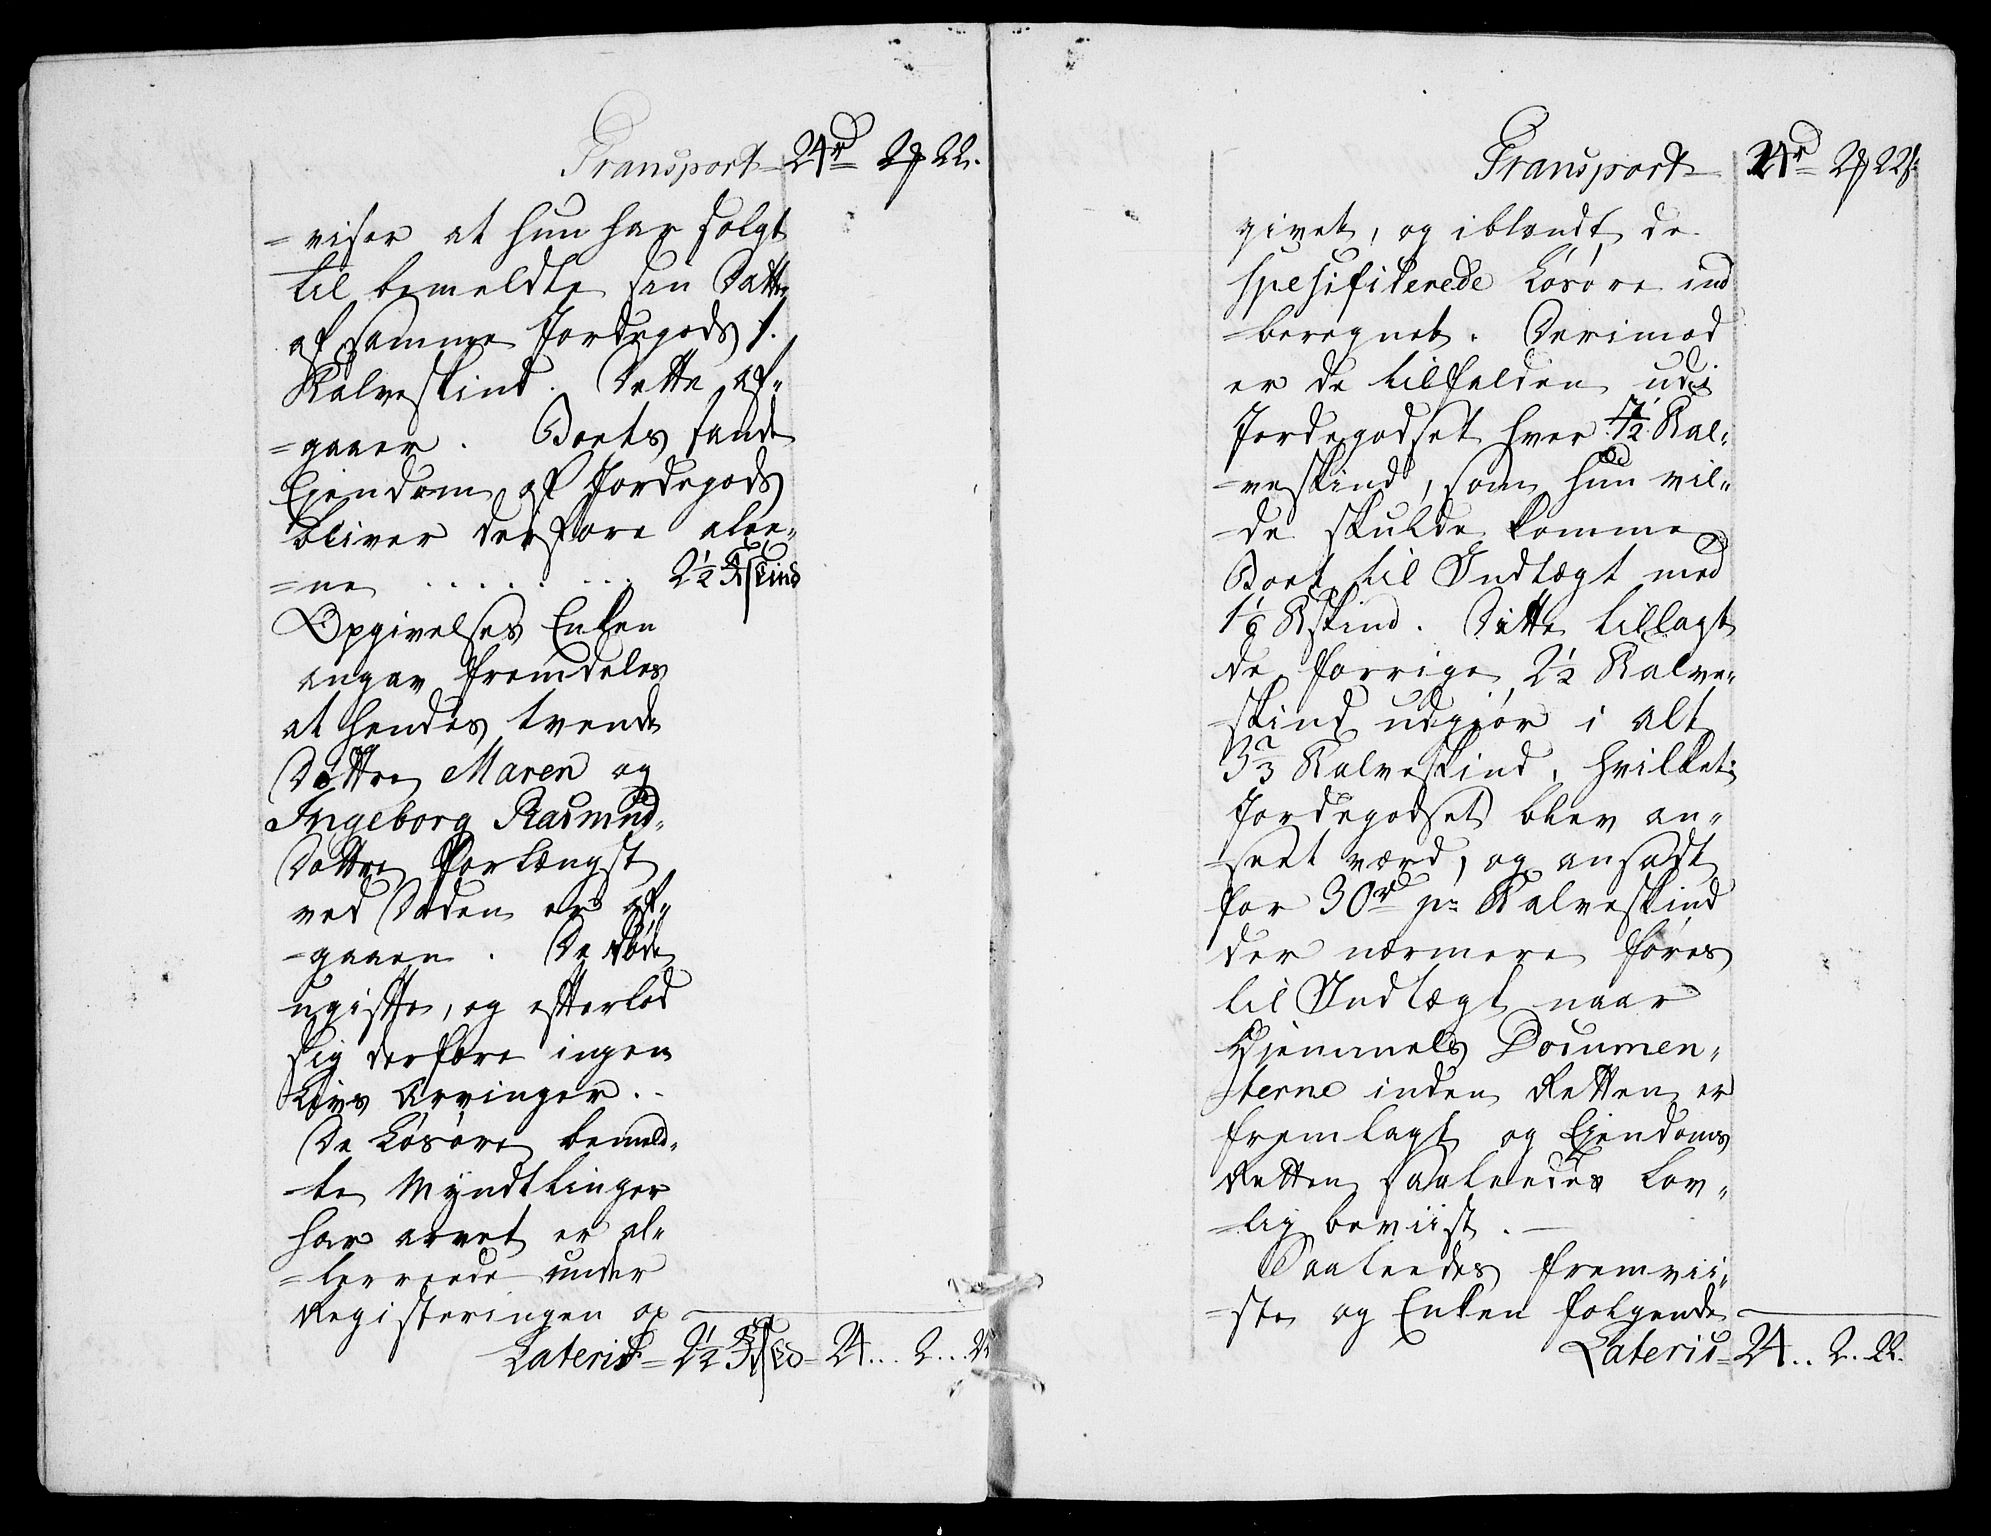 Transport = 24rd 2 22.
= viser at hun har solgt
til bemeldte sin Datter
af samme Jordegods 1.
Kalveskind. Dette af=
= gaaer. Boets sande
Ejendom af Jordegods
bliver derfore alee=
= ne . . . . . . . 2½ Kskind
Opgivelses Enken
angav fremdeles
at hendes tvende
Døttre Maren og
Ingeborg Rasmus=
Døttre forlængst
ved Døden er af=
= gaaen. De døde
ugifte, og efterlod
sig derfore ingen
Livs Arvinger. -
De Løsøre bemeld=
te Myndtlinger
har arvet er al=
= lerreede under
Registeringen op
Lateris = 2½ Kskd = 24... 2...
Transport = 24r 2 22
givet, og iblandt de
spesifiserede Løsøre ind
= beregnet. Derimod
er de tilfalden udi
Jordegodset hver Kal=
= veskind, som hun vil=
= de skulde komme
Boet til Indtægt med
1 1/6 Kskind. Dette tillagt
de forrige 2½ Kalve=
skind udgjør i alt
3⅔ Kalveskind, hvilket
Jordegodset blev an=
= seet værd, og ansadt
for 30rd pr Kalveskind
der nærmere føres
til Indtægt naar
Hjemmels Documen=
terne inden Retten er
fremlagt og Ejendoms
Retten saaleedes lov=
= lig beviist. —
Saaleedes fremvii=
= ste og Enken følgende
Lateris = 24.. 2. 22.